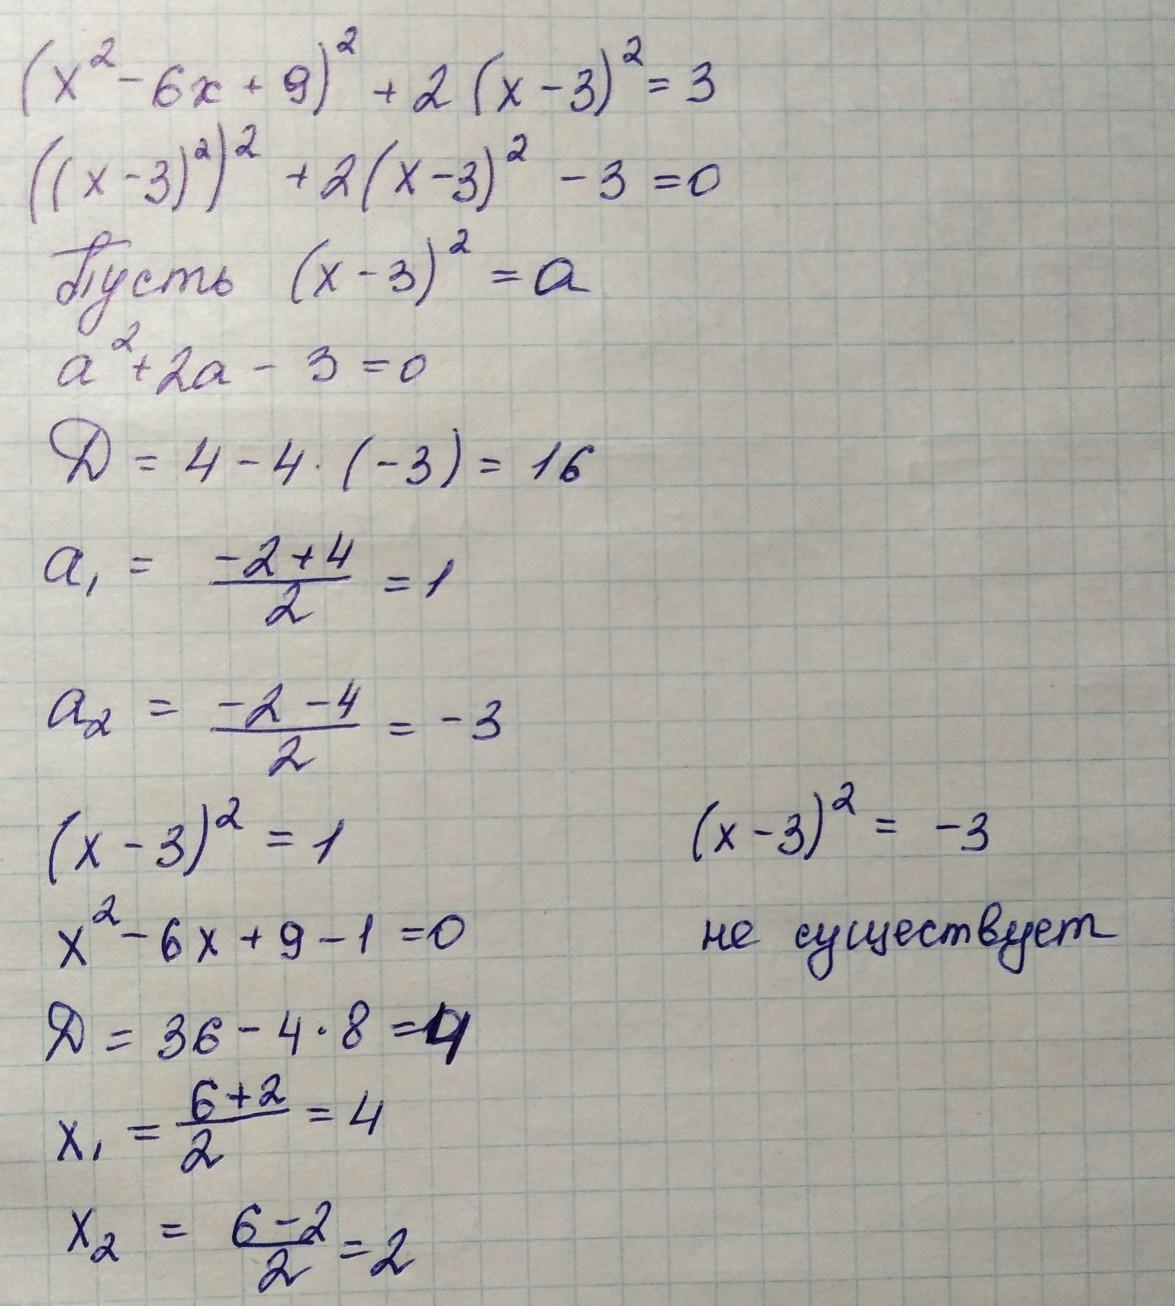 (x² - 6x + 9)² + 2(x - 3)² = 3
((x - 3)²)² + 2(x - 3)² - 3 = 0
Пусть (x - 3)² = a
a² + 2a - 3 = 0
Д = 4 - 4 · (-3) = 16
a₁ = (-2 + 4)/2 = 1
a₂ = (-2 - 4)/2 = -3
(x - 3)² = 1
(x - 3)² = -3
x² - 6x + 9 - 1 = 0
не существует
Д = 36 - 4 · 8 = 4
x₁ = (6 + 2)/2 = 4
x₂ = (6 - 2)/2 = 2